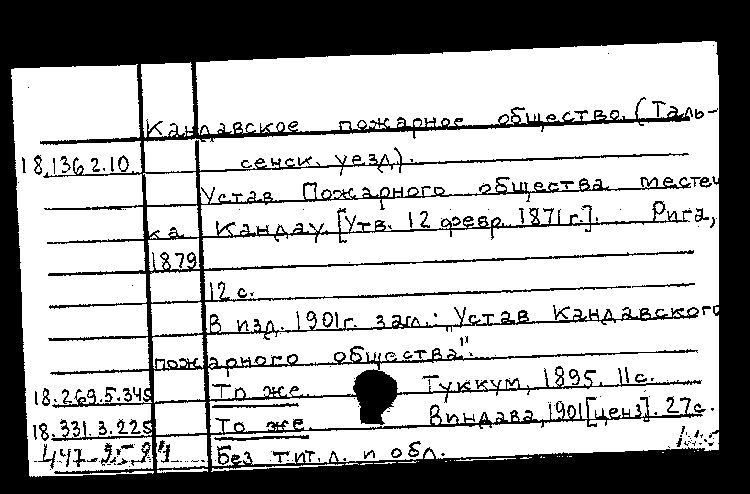 Кандавское пожарное общество. (Таль-
18.136.2.10. сенск. уезд).
Устав Пожарного общества местеч
ка Кандау. [Утв. 12 февр. 1871 г.]. Рига,
1879
12 с.
В изд. 1901 г. загл.: „Устав Кандавского
пожарного общества".
18.269.5.345 То же. Туккум, 1895. 11 с.
18.331.3.225 То же. Виндава, 1901 [ценз]. 27 с.
Без тит. л. и обл.